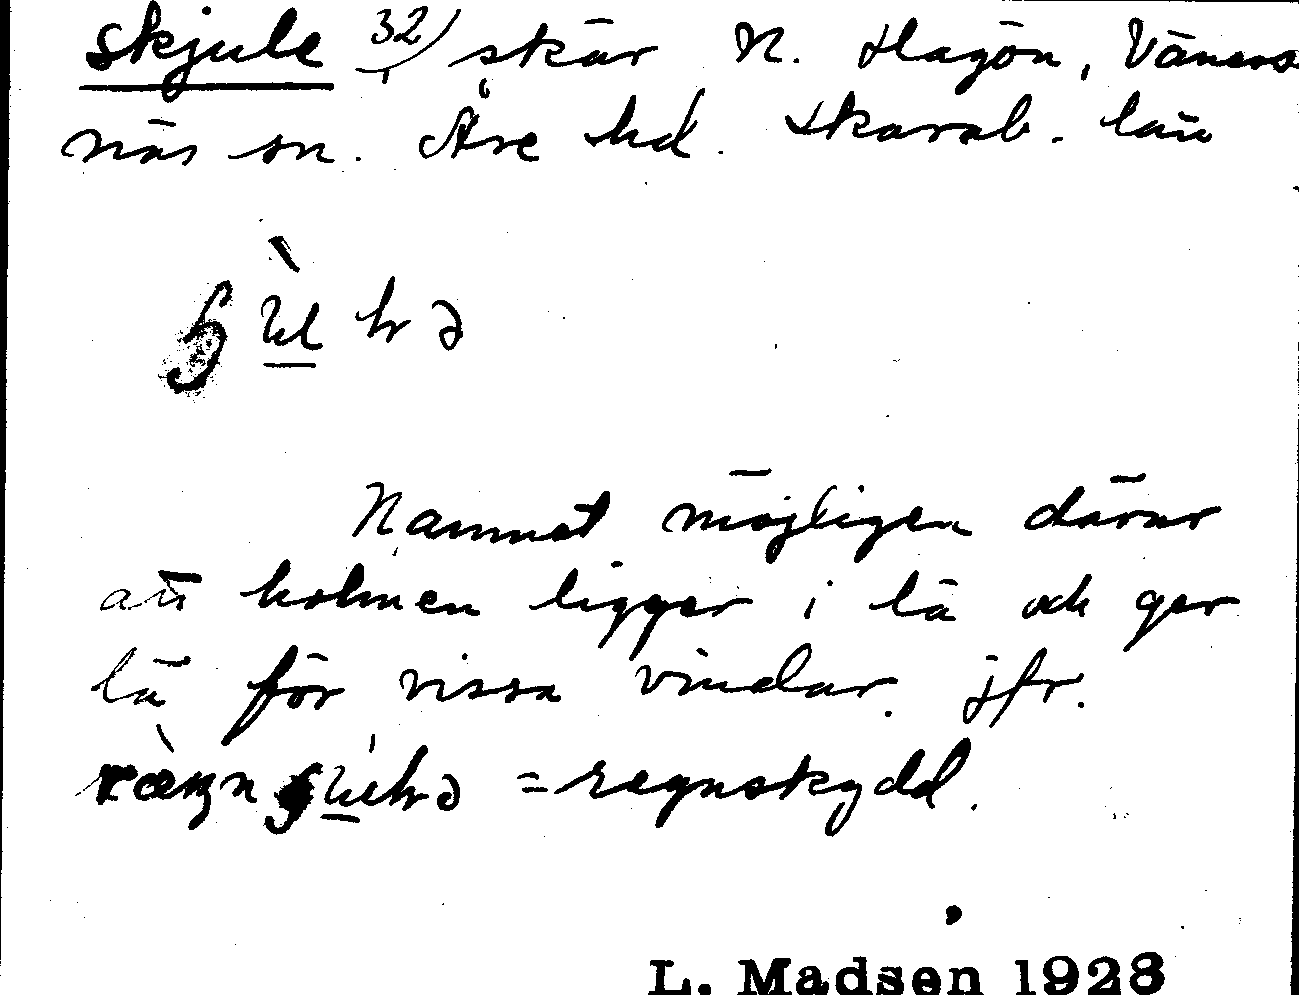 Skjule 32) skär N. Hagön, Väners
näs sn. Åse hd. Skarab. län
Namnet möjligen därur
att holmen ligger i lä och ger
lä för vissa vindar. jfr.
= regnskydd.
L. Madsen 1928